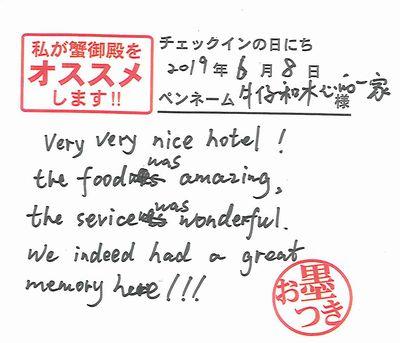 私が蟹御殿を
オススメ
します!!
チェックインの日にち
2019年6月8日
ペンネーム 牛仔和水 一家 様
Very very nice hotel!
the food was amazing,
the sevice was wonderful.
We indeed had a great
memory here!!!
お墨
つき